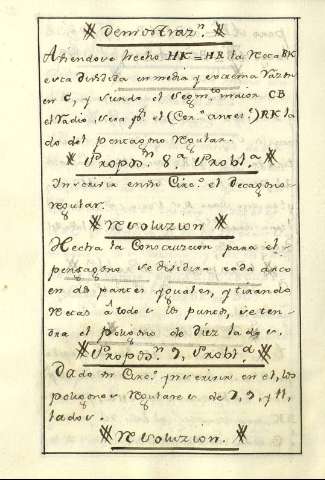 Demostraz.n
Haviendose hecho HK=HR la Recta BK
esta dividida en media y extrema Razon
en C, y siendo el segm.to maior CB
el Radio, sera p.r el (Cor.o antec.e) RK la
do del pentagono regular.
Propos.n 8.a Probl.a
Inscrivir en un Circ.o el Decagono
regular.
Resoluzion
Hecha la Construczion para el
pentagono se dividira cada arco
en dos partes yguales, y tirando
Rectas a todos los puntos, se ten
dra el poligono de diez lados.
Propos.n 9, Probl.a
Dado un Circ.o ynscrivir en el, los
poligonos Regulares de 7, 9, y 11,
lados.
Resoluzion.